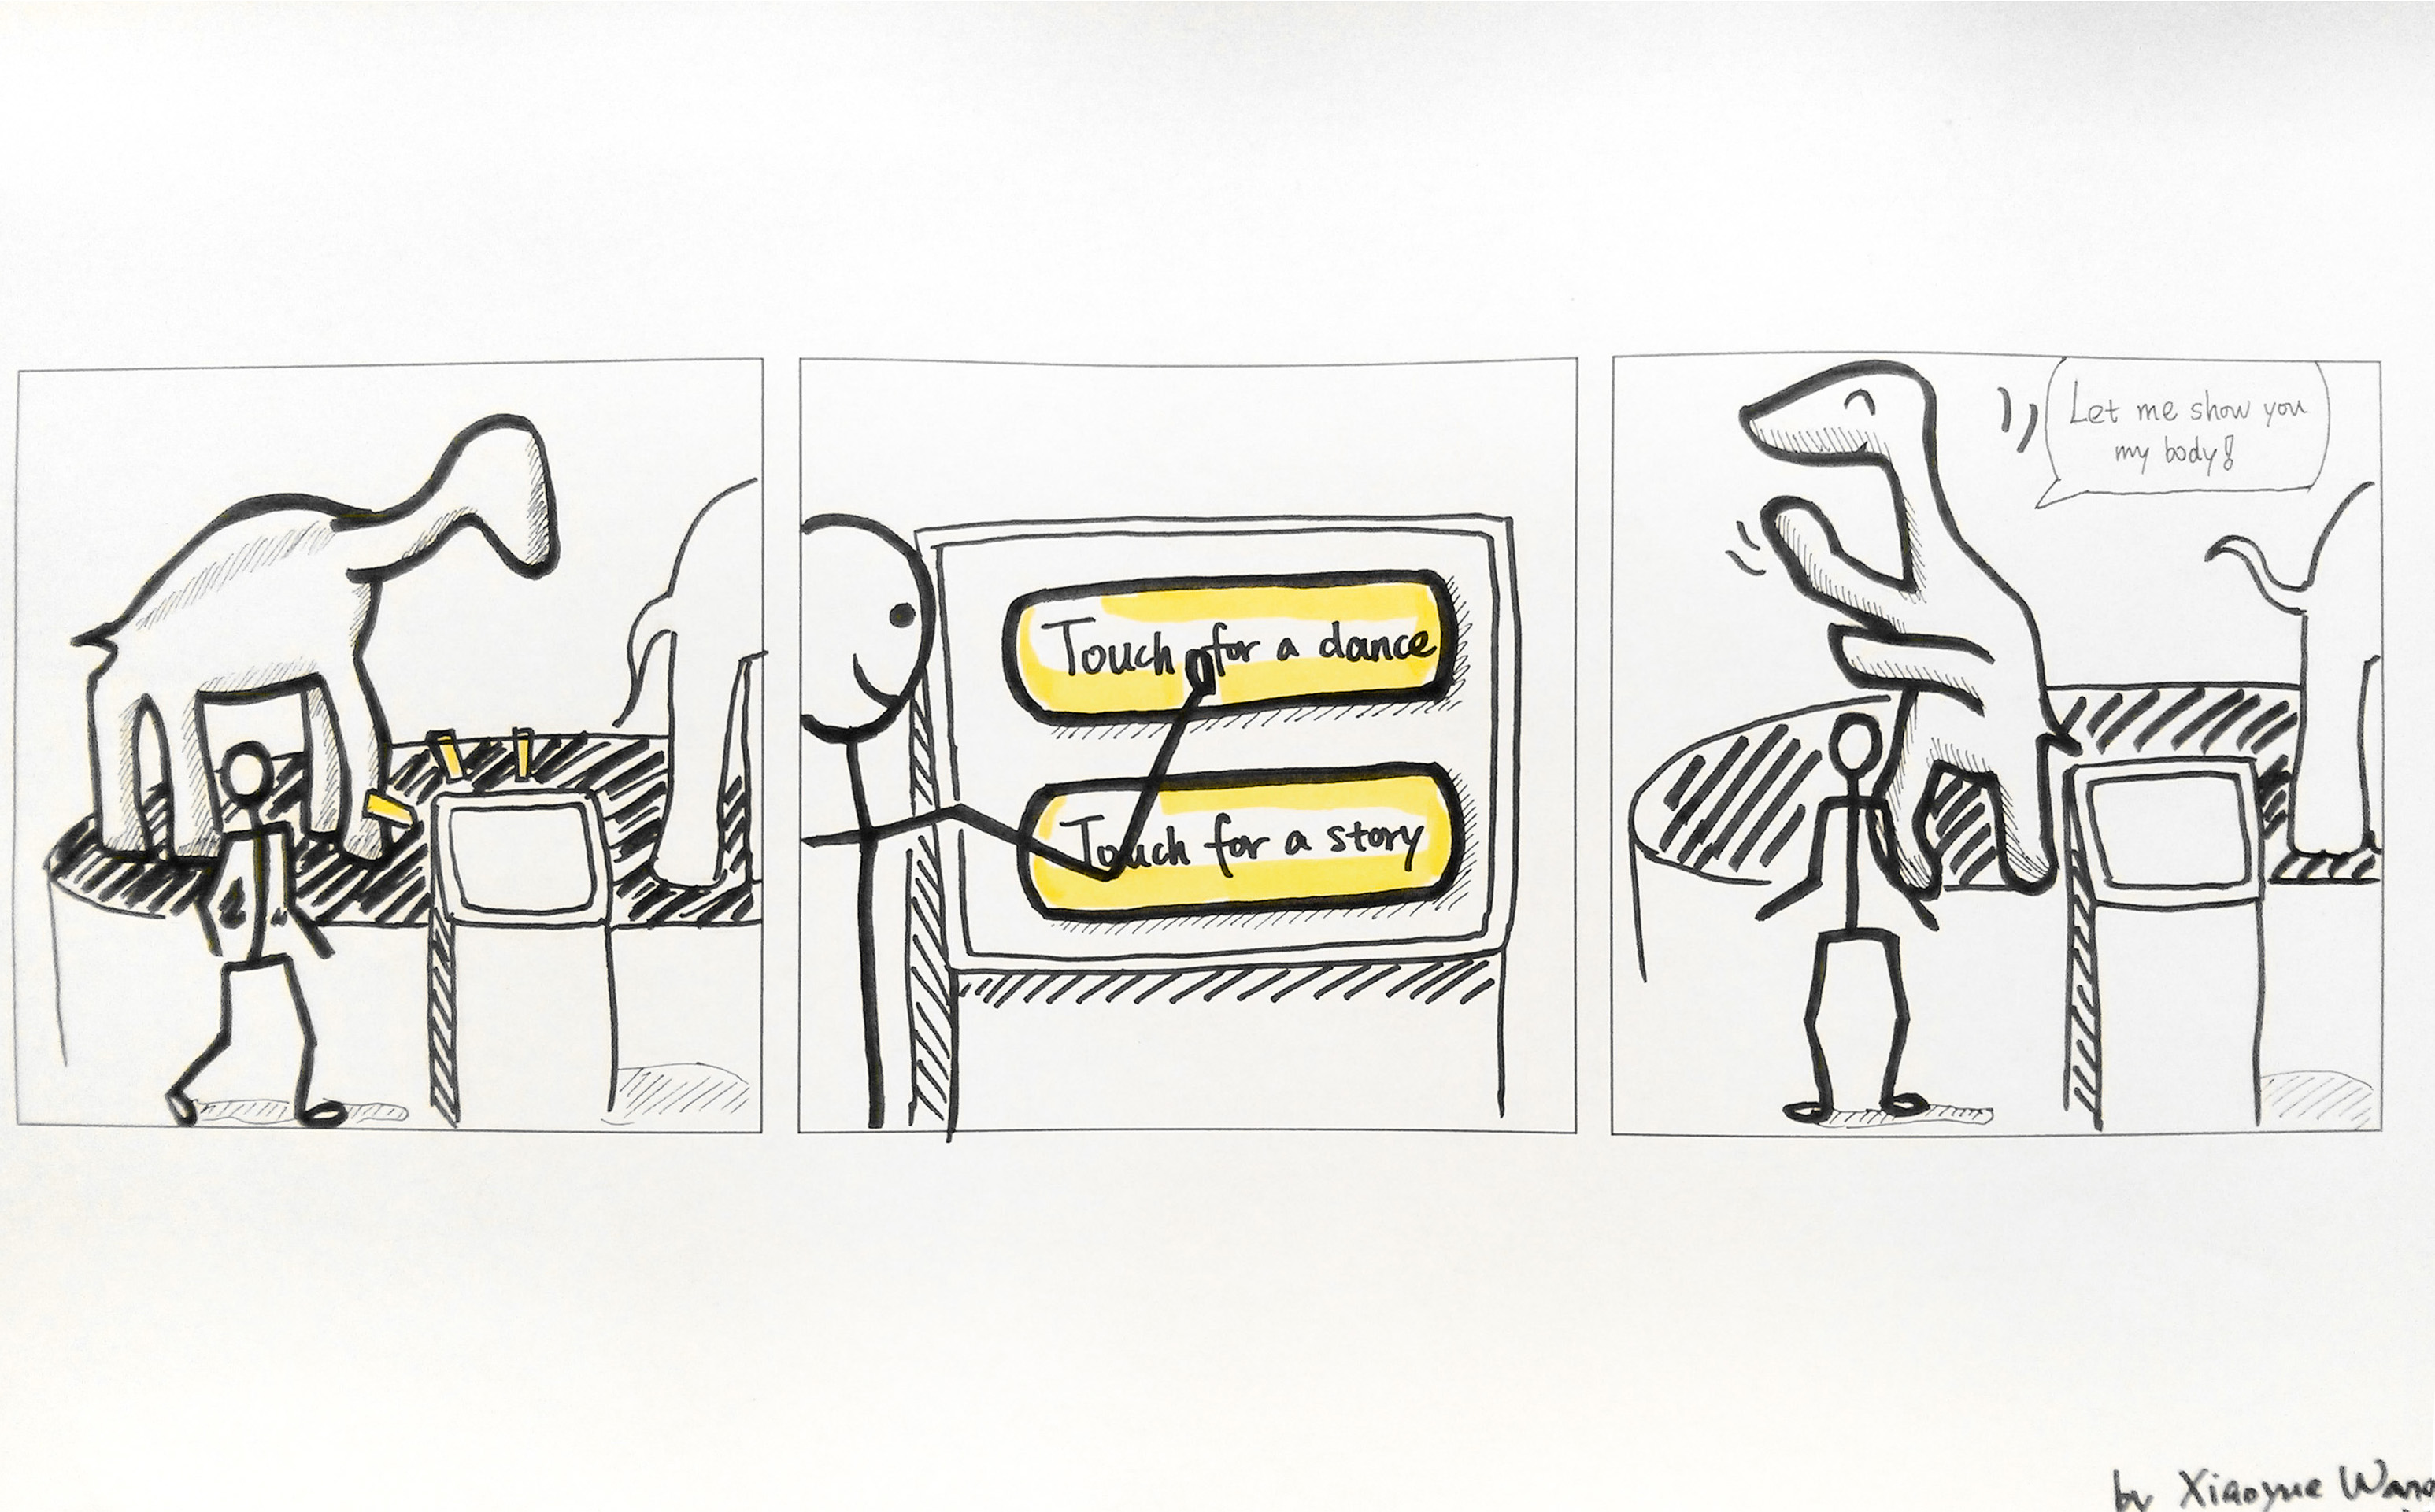 Touch for a dance
Touch for a story
Let me show you
my body!
by Xiaoyue Wang